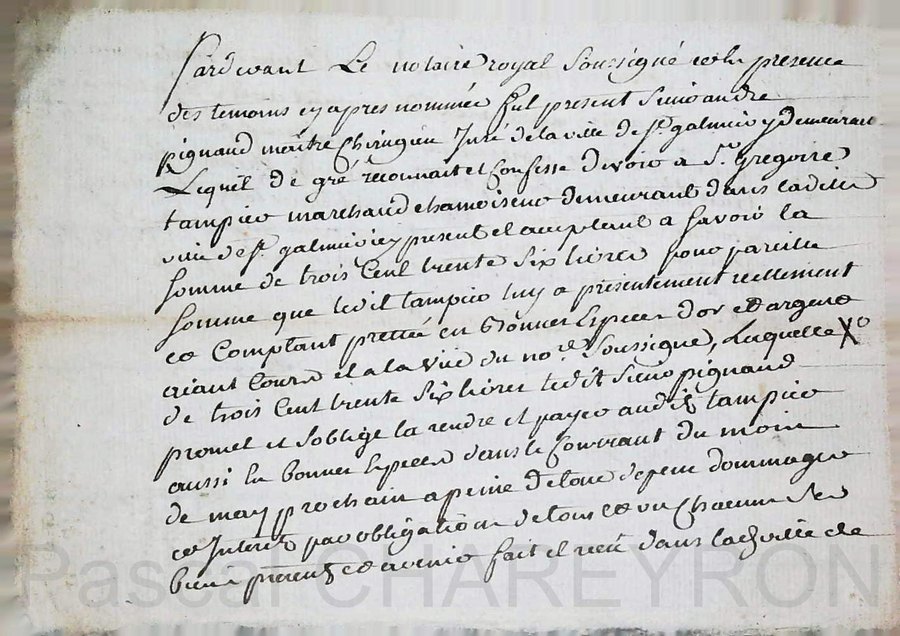 Pardevant Le notaire royal Soussigné et la presence
des temoins cy apres nommée fut present Sieur andre
pignaud maitre Chirugien Juré de la ville de st. galmier y demeurant
Lequel de gré reconnait et Confesse devoir a Sr. Gregoire
tampier marchand chamoiseur demeurant dans ladite
ville de st. galmier icy present et acceptant a Savoir la
Somme de trois Cent trente Six livres pour pareille
Somme que ledit tampier luy a presentement reellement
et Comptant prettée en bonnes Especes d'or et d'argent
aiant Cours et a la vüe du nore. Soussigné, Laquelle
de trois Cent trente Six livres ledit Sieur pignaud
promet et Soblige la rendre et payer audit tampier
aussi En bonnes Especes dans le Courrant du mois
de may prochain a peine de tous depens dommages
et Interets par obligation de tous et un Chacuns Ses
biens presents et avenir fait et recu dans lad. ville de
Pascal CHAREYRON